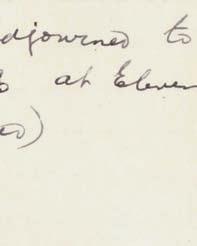 adjourned to
at Eleven